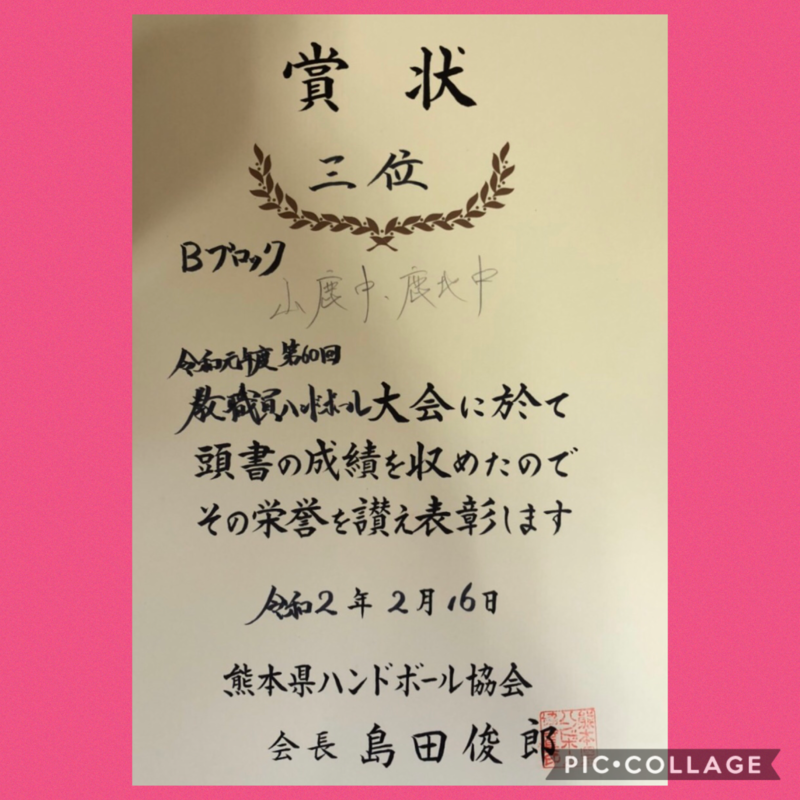 賞状
三位
Bブロック
山鹿中、鹿北中
令和元年度 第60回
教職員ハンドボール大会に於て
頭書の成績を収めたので
その栄誉を讃え表彰します
令和2年2月16日
熊本県ハンドボール協会
会長 島田俊郎
PIC•COLLAGE